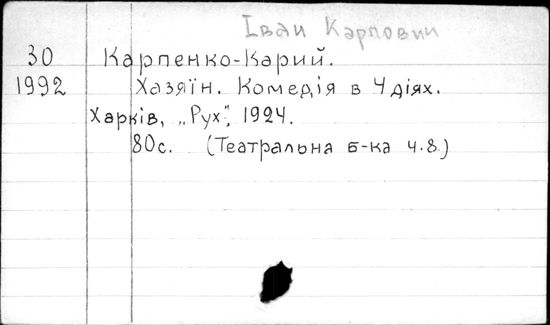 Іван Карпович
30 Карпенко-Карий.
1992 Хазяїн. Комедія в 4 діях.
Харків, „Рух", 1924.
80с. (Театральна б-ка ч.8.)